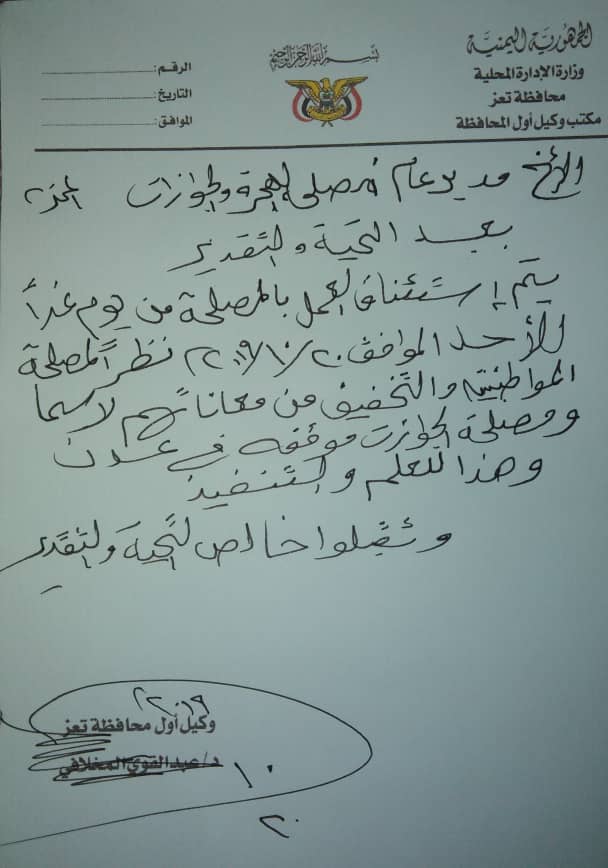 الجمهورية اليمنية
وزارة الإدارة المحلية
محافظة تعز
مكتب وكيل أول المحافظة
بسم الله الرحمن الرحيم
الرقم:
التاريخ:
الموافق:
الأخ مدير عام مصلحة الهجرة والجوازات المحترم
بعد التحية والتقدير
يتم إستئناف العمل بالمصلحة من يوم غداً
الأحد الموافق ٢٠/١٠/٢٠١٩ نظراً لمصلحة
المواطنين والتخفيف من معاناتهم لاسيما
ومصلحة الجوازات موقفه في عدن
وهذا للعلم والتنفيذ
وتقبلوا خالص التحية والتقدير
٢٠١٩
وكيل أول محافظة تعز
د/عبدالقوي المخلافي
١٠
٢٠